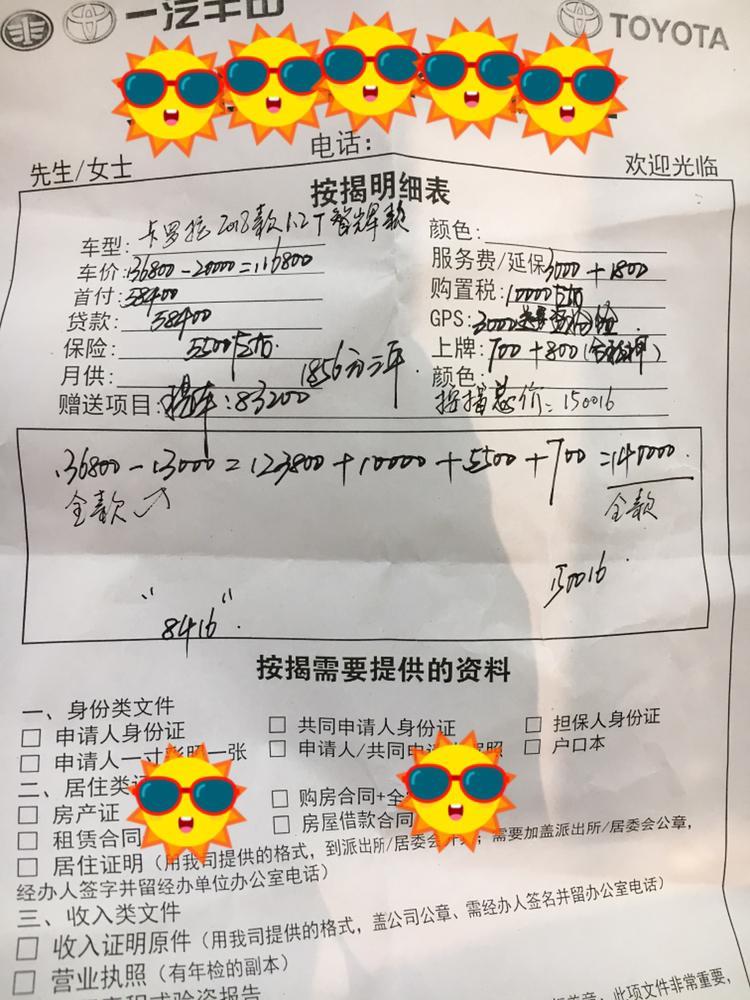 一汽丰田 TOYOTA
电话:
先生/女士 欢迎光临
按揭明细表
车型: 卡罗拉 2018款1.2T 智辉款 颜色:
车价: 136800-20000=116800 服务费/延保 3000+1800
首付: 58400 购置税: 10000左右
贷款: 58400 GPS: 3000
保险: 5500左右 上牌: 700+800
月供: 1856元三年 颜色:
赠送项目: 提车:83200 按揭总价:150016
136800-13000=123800+10000+5500+700=140000
全款 全款
150016
"8416"
按揭需要提供的资料
一、身份类文件
□ 申请人身份证 □ 共同申请人身份证 □ 担保人身份证
□ 申请人一寸彩照一张 □ 申请人/共同申 □ 户口本
二、居住类
□ 房产证 □ 购房合同+全
□ 租赁合同 □ 房屋借款合同
□ 居住证明(用我司提供的格式,到派出所/居委会开具;需要加盖派出所/居委会公章,
经办人签字并留经办单位办公室电话)
三、收入类文件
□ 收入证明原件(用我司提供的格式,盖公司公章、需经办人签名并留办公室电话)
□ 营业执照(有年检的副本)
章程或验资报告
此项文件非常重要,